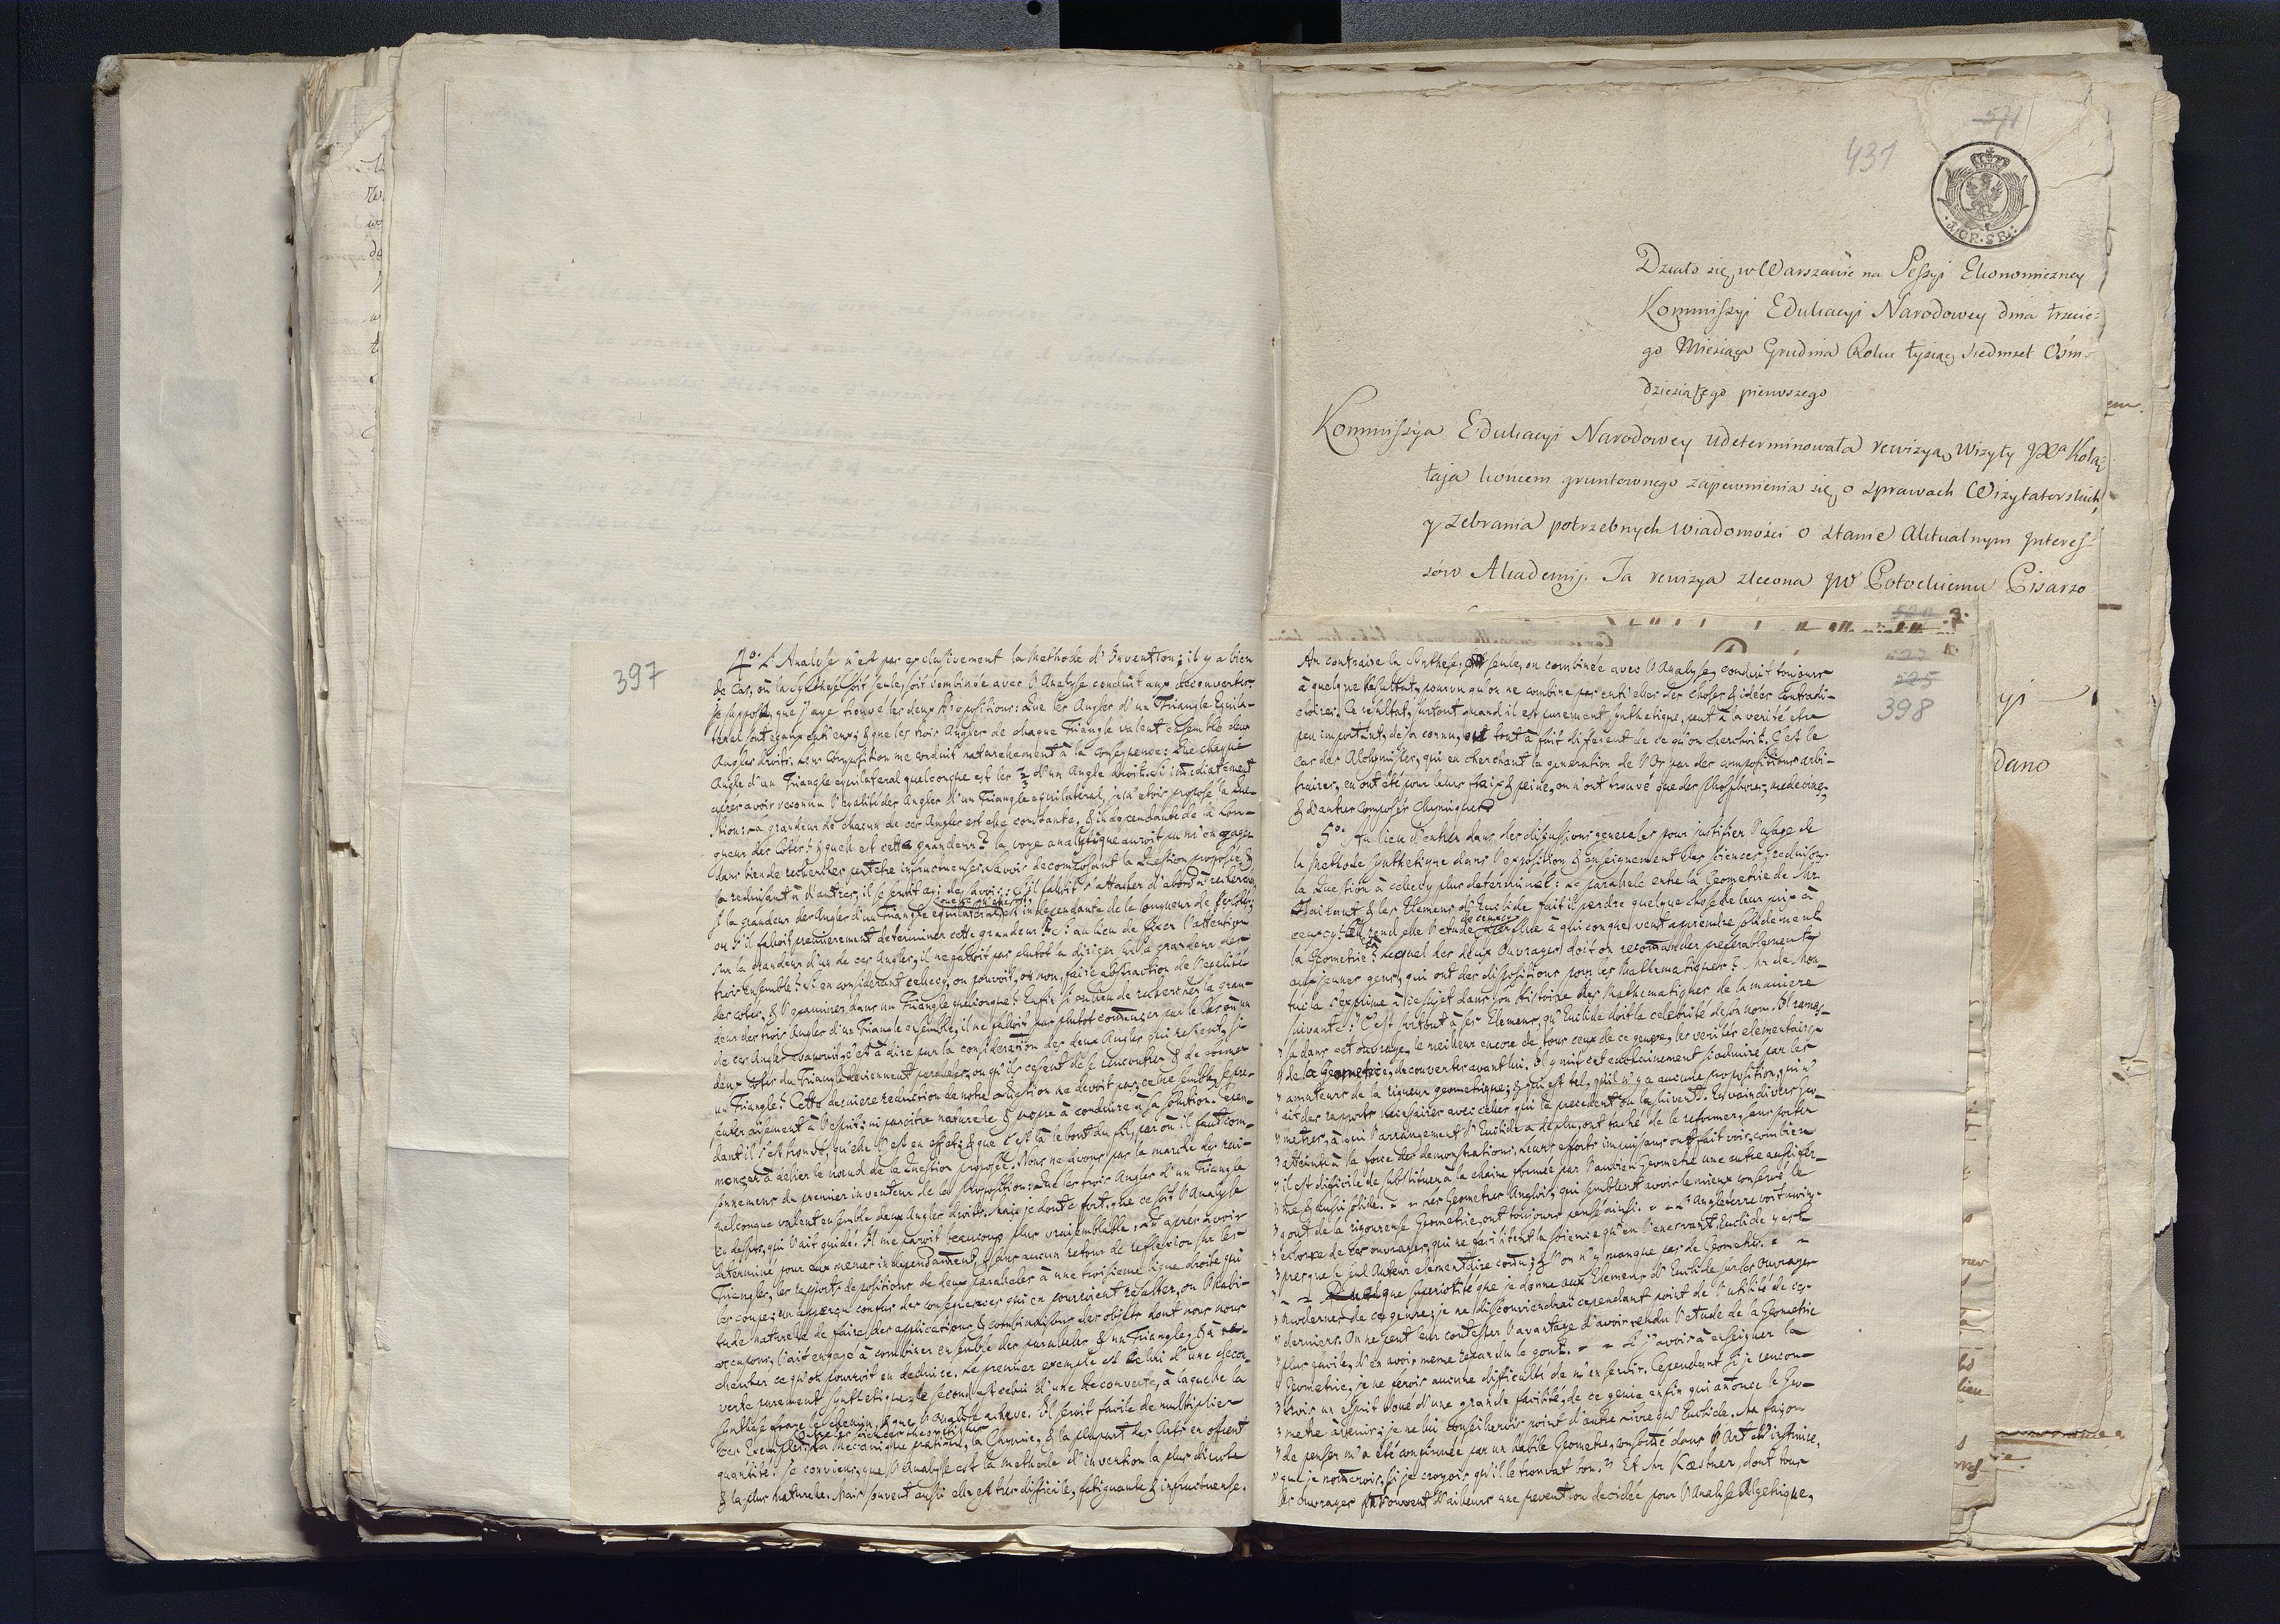 397
4.º L'Analyse n'est pas exclusivement la Methode d'Invention; il y a bien
de Cas, où la Synthese soit seule, soit combinée avec l'Analyse conduit aux decouvertes.
Je suppose, que j'aye trouvé les deux Propositions: Que les Angles d'un Triangle Equila-
teral sont egaux entr'eux; & que les trois Angles de chaque Triangle valent ensemble deux
Angles droits. Leur Composition me conduit naturellement à la Consequence: Que chaque
Angle d'un Triangle equilateral quelconque est les 2/3 d'un Angle droit. Si immediatement
après avoir reconnu l'egalité des Angles d'un Triangle equilateral, je m'etois proposé la Que-
stion: La grandeur de chacun de ces Angles est elle constante, & independante de la Lon-
gueur des Cotés? & quelle est cette grandeur? la voye analytique auroit pu m'engager
dans bien de recherches peutetre infructueuses. Savoir decomposant la Question proposée &
la reduisant à d'autres, il s'eut agi de savoir: S'il falloit s'attacher d'abord à rechercher,
si la grandeur des Angles d'un Triangle equilateral est independante de la longueur de ses Cotés;
ou s'il falloit premierement determiner cette grandeur? Si au lieu de fixer l'attention
sur la grandeur d'un de ces Angles, il ne falloit pas plutot la diriger sur la grandeur des
trois ensemble? Si en considerant celle cy, on pouvoit, ou non, faire abstraction de l'egalité
des cotés, & l'examiner dans un Triangle quelconque? Enfin si au lieu de rechercher la gran-
deur des trois Angles d'un Triangle ensemble, il ne falloit pas plutot commencer par le Cas où un
de ces Angles evanouit, c'est à dire par la consideration des deux Angles qui restent, si
deux Cotés du Triangle deviennent paralleles, ou qu'ils cessent de se rencontrer & de former
un Triangle? Cette derniere reduction de notre Question ne devoit pas, ce me semble, se pre-
senter aisement à l'esprit; ni paroitre naturelle & propre à conduire à la solution. Cepen-
dant il s'est trouvé, qu'elle l'est en effet; & que c'est là le bout du fil, par où il faut com-
mencer à delier le noeud de la Question proposée. Nous ne savons pas la marche des rai-
sonnemens du premier inventeur de la Proposition: Que les trois Angles d'un Triangle
quelconque valent ensemble deux Angles droits. Mais je doute fort, que ce soit l'Analyse
ci dessus, qui l'ait guidé. Il me paroit beaucoup plus vraisemblable: Qu'après avoir
determiné pour eux memes independamment, & sans aucun retour de reflexion sur les
Triangles, les rapports de positions de deux paralleles à une troisieme ligne droite qui
les coupe; un apperçu confus des consequences qui en pourroient resulter, ou l'habi-
tude naturelle de faire des applications & combinaisons des objets dont nous nous
occupons, l'ait engagé à combiner ensemble des paralleles & un Triangle, & à re-
chercher ce qu'on pourroit en deduire. Le premier exemple est celui d'une decou-
verte purement synthetique; le second est celui d'une decouverte, à laquelle la
Synthese fraye le chemin, & que l'Analyse acheve. Il seroit facile de multiplier
ces Exemples; la Mecanique pratique, la Chymie, & la plupart des Arts en offrent
quantité. Je conviens, que l'Analyse est la Methode d'invention la plus directe
& la plus naturelle. Mais souvent aussi elle est très difficile, fatiguante & infructueuse.
571
431
Działo się w Warszawie na Sessyi Ekonomiczney
Kommissyi Edukacyi Narodowey dnia trzecie-
go Miesiąca Grudnia Roku tysiąc siedmset Ośm-
dziesiątego pierwszego
Kommissya Edukacyi Narodowey udeterminowała rewizyą Wizyty JXa Kołą-
taja końcem gruntownego zapewnienia się o sprawach Wizytatorskich,
y zebrania potrzebnych wiadomości o stanie Aktualnym Interes-
sów Akademij. Ta rewizya zlecona JW Potockiemu Pisarzo
525
398
yi
dano
Au contraire la Synthese, seule, ou combinée avec l'Analyse, conduit toujours
à quelque Resultat, pourvu qu'on ne combine pas entr'elles des choses & idées contradi-
ctoires. Ce resultat, surtout quand il est purement synthetique, peut à la verité etre
peu important, deja connu, tout à fait different de ce qu'on cherchoit. C'est le
Cas des Alchymistes, qui en cherchant la generation de l'Or par des compositions arbi-
traires, en ont été pour leurs fraix & peine, ou n'ont trouvé que des Phosphores, medecines,
& d'autres composés Chymiques
5.º Au lieu d'entrer dans des discussions generales pour justifier l'usage de
la Methode synthetique dans l'exposition & enseignement des sciences; reduisons
la Question à celle cy plus determinée: Le parallele entre la Geometrie de Mr.
& les Elemens d'Euclide fait il perdre quelque chose de leur prix à
ceux cy? En rend elle l'etude superflue à quiconque veut apprendre solidement
la Geometrie? Lequel des deux Ouvrages doit on recommander preferablement
aux jeunes gens, qui ont des dispositions pour les Mathematiques? Mr. de Mon-
tucla s'exprime à ce sujet dans son Histoire des Mathematiques de la maniere
suivante: "C'est surtout à ses Elemens, qu'Euclide doit la celebrité de son nom. Il ramas-
" sa dans cet ouvrage, le meilleur encore de tous ceux de ce genre, les verités elementaires
" de la Geometrie, decouvertes avant lui. Il y mit cet enchainement si admiré par les
" amateurs de la rigueur geometrique; & qui est tel, qu'il n'y a aucune proposition, qui n'
" ait des rapports necessaires avec celles qui la precedent ou la suivent. En vain divers Geo-
" metres, à qui l'arrangement d'Euclide a deplu, ont taché de le reformer, sans porter
" atteinte à la force des demonstrations. Leurs efforts impuissans ont fait voir, combien
" il est difficile de substituer à la chaine formée par l'ancien Geometre une autre aussi fer-
" me & aussi solide. " " Les Geometres Anglois, qui semblent avoir le mieux conservé le
" gout de la rigoureuse Geometrie, ont toujours pensé ainsi. " " L'Angleterre voit moins
" eclorre de ces ouvrages, qui ne facilitent la science qu'en l'enervant. Euclide y est
" presque le seul Auteur elementaire connu; & l'on n'y manque pas de Geometres. " "
" " Quelque superiorité que je donne aux Elemens d'Euclide sur les Ouvrages
" modernes de ce genre; je ne disconviendrai cependant point de l'utilité de ces
" derniers. On ne peut leur contester l'avantage d'avoir rendu l'etude de la Geometrie
" plus facile, d'en avoir meme repandu le gout. " " Si j'avois à enseigner la
" Geometrie, je ne ferois aucune difficulté de m'en servir. Cependant si je rencon-
" trois un esprit doué d'une grande facilité, de ce genie enfin qui annonce le Geo-
" metre à venir; je ne lui conseillerois point d'autre livre qu'Euclide. Ma façon
" de penser m'a été confirmée par un habile Geometre, consommé dans l'Art d'instruire,
" que je nommerois, si je croyois qu'il le trouvat bon." Et Mr Kæstner, dont tous
les ouvrages prouvent d'ailleurs une prevention decidée pour l'Analyse Algebrique,